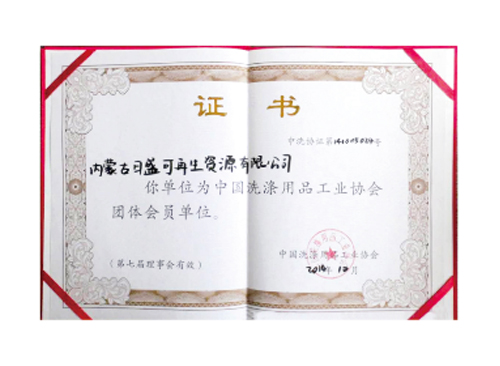 证 书
中洗协证第 号
内蒙古日盛可再生资源有限公司
你单位为中国洗涤用品工业协会
团体会员单位。
中国洗涤用品工业协会
(第七届理事会有效)
2014年 月